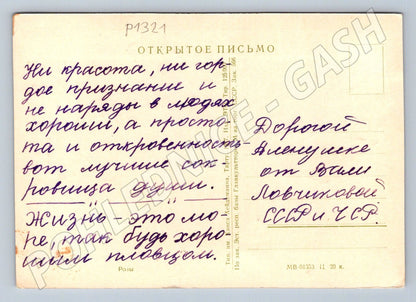 P1321
ОТКРЫТОЕ ПИСЬМО
Ни красота, ни гор-
дое признание и
не наряды в людях
хороши, а просто-
та и откровенность
вот лучшие сок-
ровища души.
Жизнь - это мо-
ре, так будь хоро-
шим пловцом.
Розы
Дорогой
Аленушке
от Вали
Ловчиковой
СССР и ЧСР.
POHLEDNICE - GASH